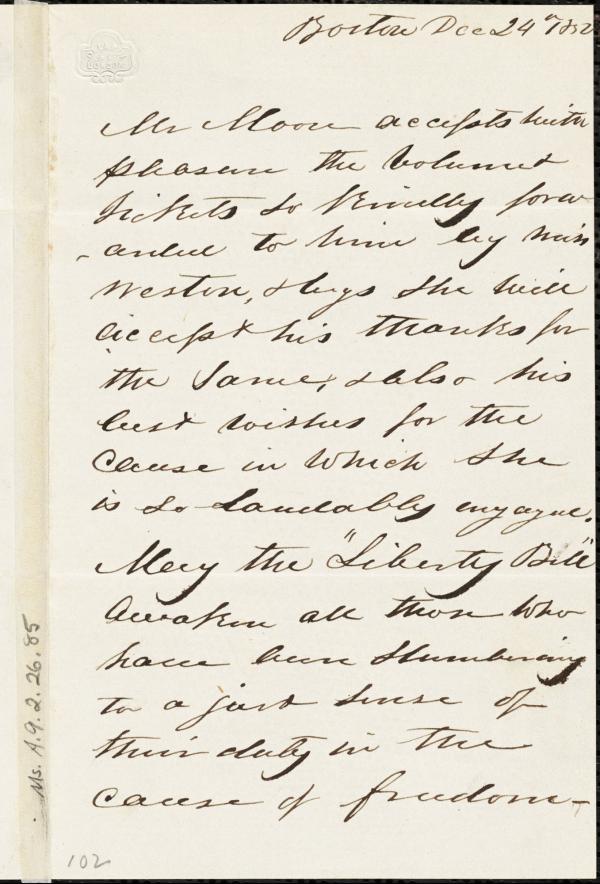 Boston Dec 24th 1852
Mr Moore accepts with
pleasure the volume &
tickets so kindly forw
-arded to him by Miss
Weston, & begs she will
accept his thanks for
the same, & also his
best wishes for the
cause in which she
is so laudably engaged.
May the "Liberty Bell"
awaken all those who
have been slumbering
to a just sense of
their duty in the
cause of freedom-
Ms. A.9.2.26.85
102